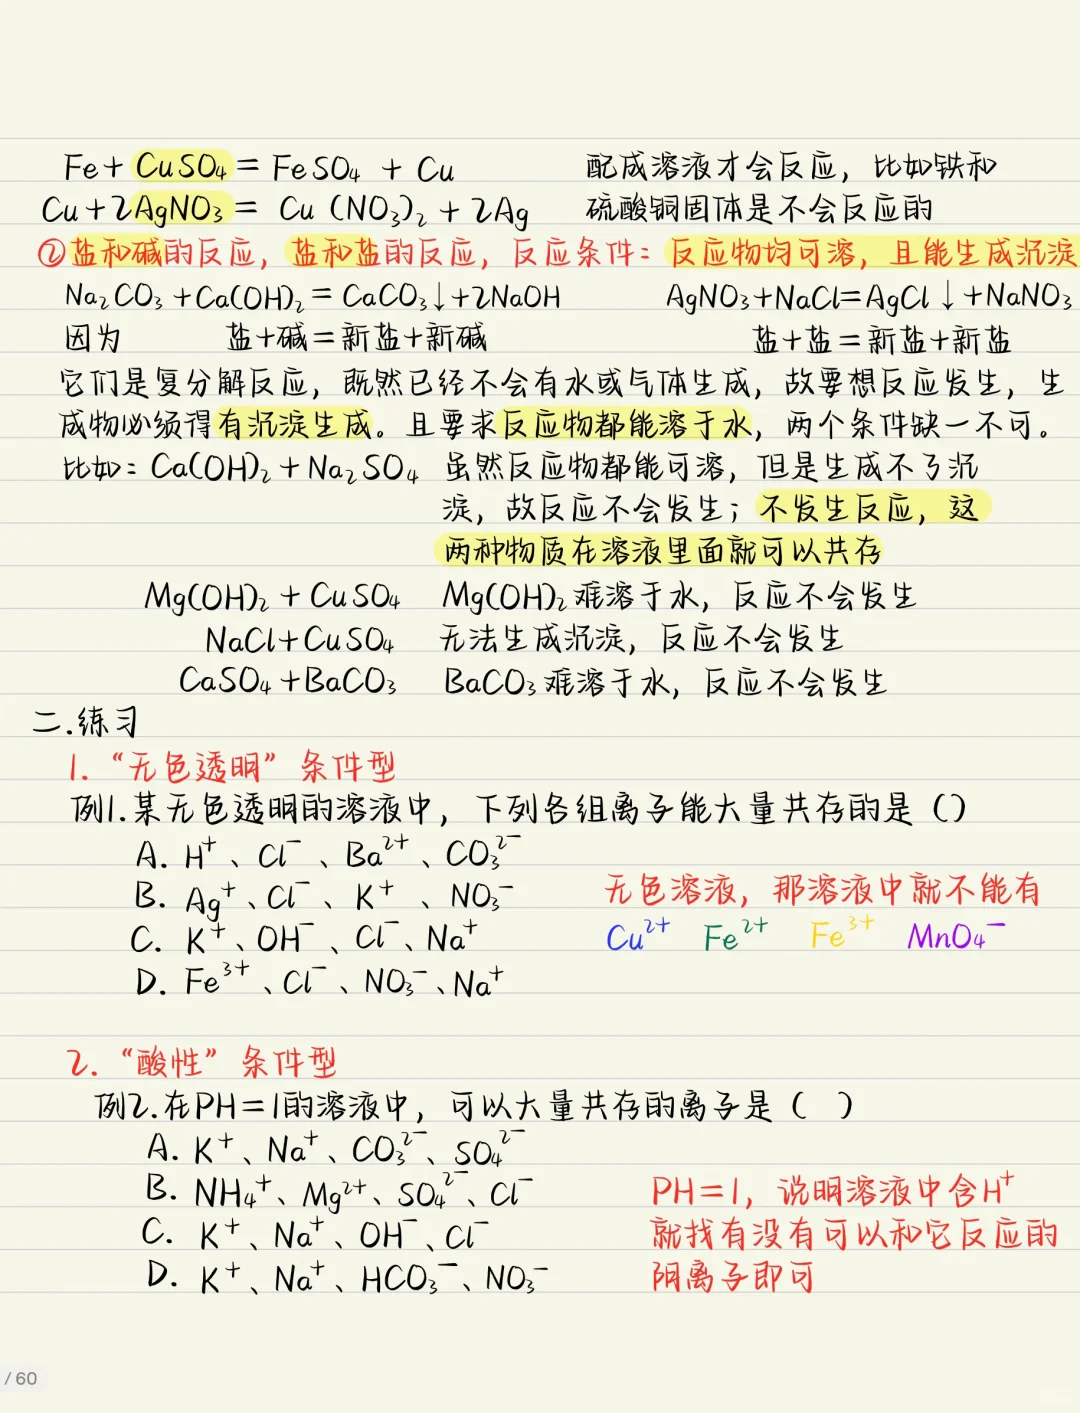 Fe+CuSO₄=FeSO₄+Cu 配成溶液才会反应，比如铁和
Cu+2AgNO₃=Cu(NO₃)₂+2Ag 硫酸铜固体是不会反应的
②盐和碱的反应，盐和盐的反应，反应条件：反应物均可溶，且能生成沉淀
Na₂CO₃+Ca(OH)₂=CaCO₃↓+2NaOH AgNO₃+NaCl=AgCl↓+NaNO₃
因为 盐+碱=新盐+新碱 盐+盐=新盐+新盐
它们是复分解反应，既然已经不会有水或气体生成，故要想反应发生，生
成物必须得有沉淀生成。且要求反应物都能溶于水，两个条件缺一不可。
比如：Ca(OH)₂+Na₂SO₄ 虽然反应物都能可溶，但是生成不了沉
淀，故反应不会发生；不发生反应，这
两种物质在溶液里面就可以共存
Mg(OH)₂+CuSO₄ Mg(OH)₂难溶于水，反应不会发生
NaCl+CuSO₄ 无法生成沉淀，反应不会发生
CaSO₄+BaCO₃ BaCO₃难溶于水，反应不会发生
二.练习
1.“无色透明”条件型
例1.某无色透明的溶液中，下列各组离子能大量共存的是（）
A. H⁺、Cl⁻、Ba²⁺、CO₃²⁻
B. Ag⁺、Cl⁻、K⁺、NO₃⁻ 无色溶液，那溶液中就不能有
C. K⁺、OH⁻、Cl⁻、Na⁺ Cu²⁺ Fe²⁺ Fe³⁺ MnO₄⁻
D. Fe³⁺、Cl⁻、NO₃⁻、Na⁺
2.“酸性”条件型
例2.在PH=1的溶液中，可以大量共存的离子是（ ）
A. K⁺、Na⁺、CO₃²⁻、SO₄²⁻
B. NH₄⁺、Mg²⁺、SO₄²⁻、Cl⁻ PH=1，说明溶液中含H⁺
C. K⁺、Na⁺、OH⁻、Cl⁻ 就找有没有可以和它反应的
D. K⁺、Na⁺、HCO₃⁻、NO₃⁻ 阴离子即可
/ 60